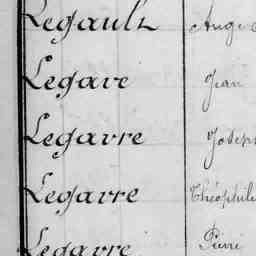 Legault Augu
Legave Jean
Legavre Joseph
Legavre Théophile
Legavre Pierre